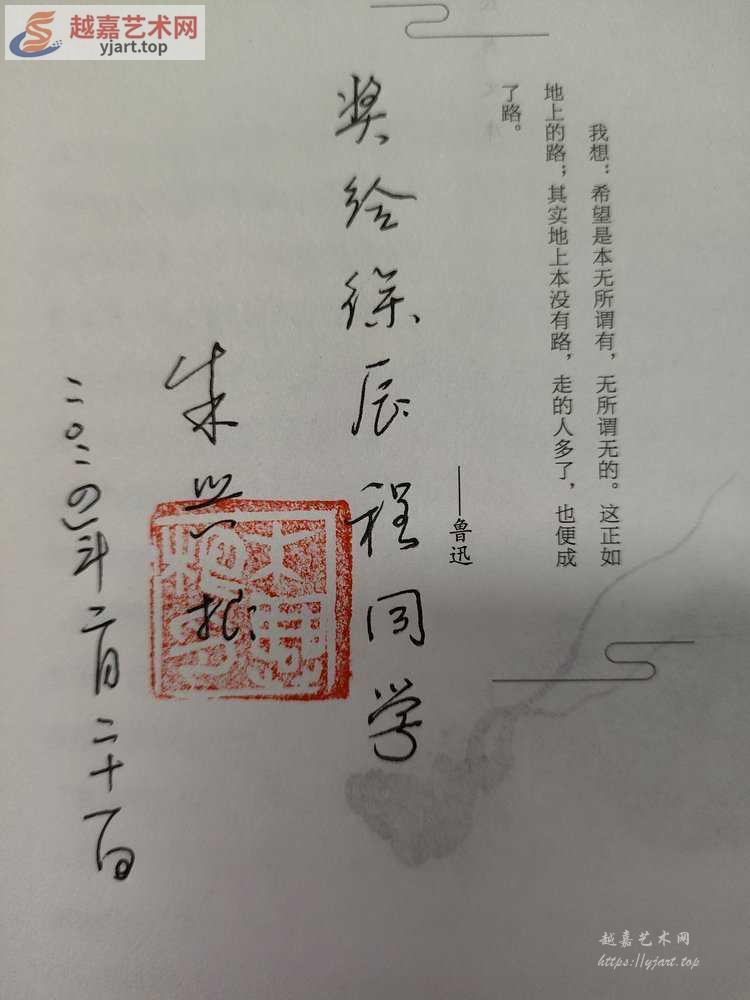 越嘉艺术网
yjart.top
我想：希望是本无所谓有，无所谓无的。这正如
地上的路；其实地上本没有路，走的人多了，也便成
了路。
——鲁迅
奖给徐辰程同学
朱兴根
二〇二四年二月二十一日
越嘉艺术网
https://yjart.top